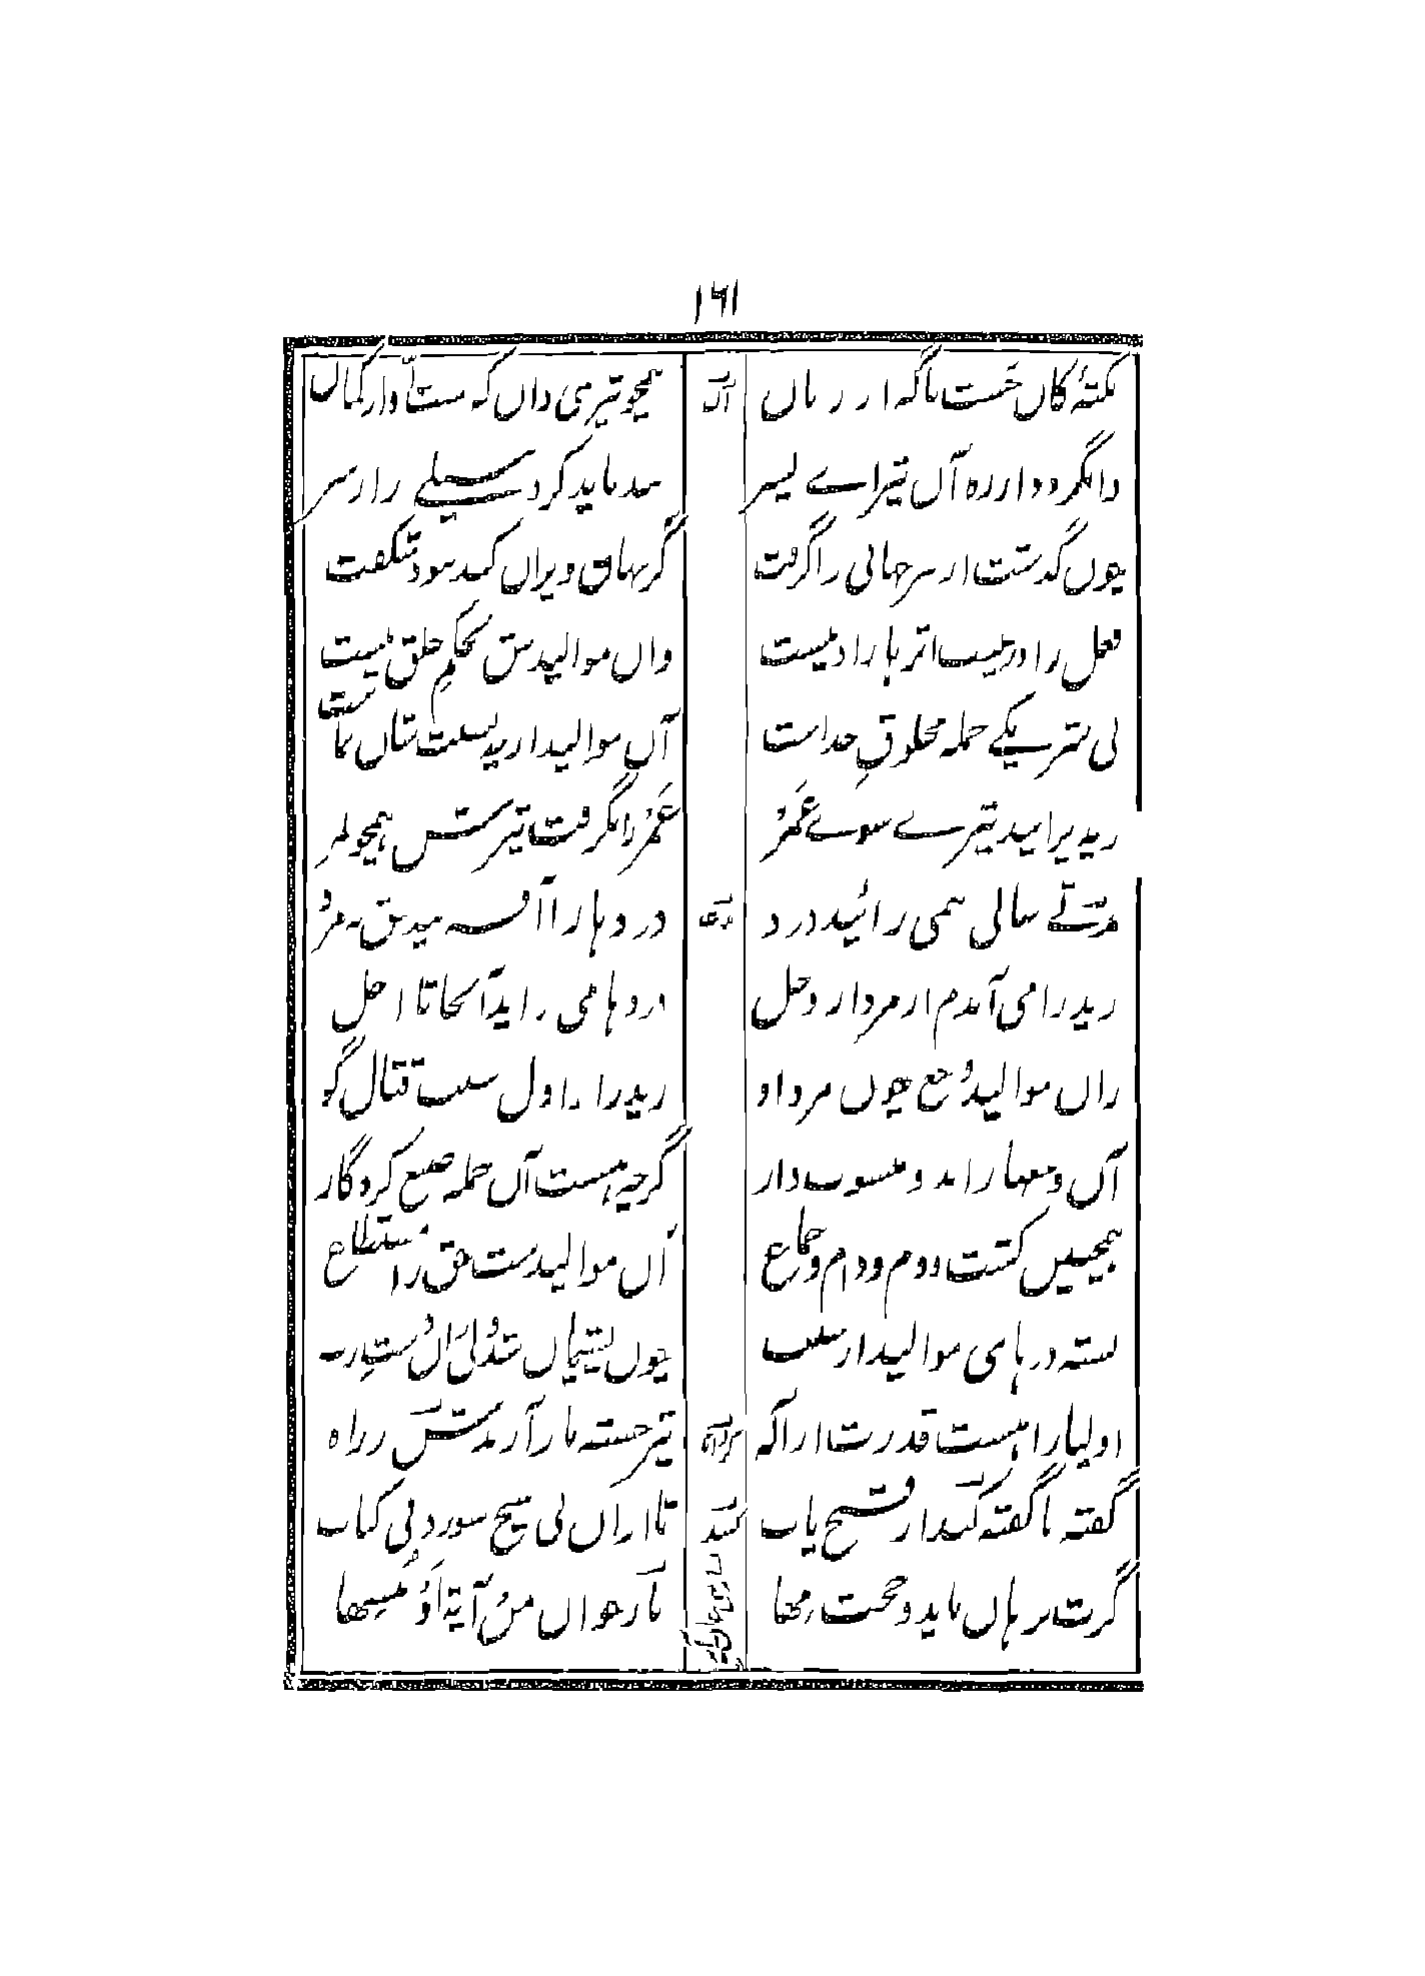 ۱۶۱
نکتۂ کاں جَست ناگہ از زباں آں ہمچو تیرے داں کہ جست آں از کماں
وانگردد از رہ آں تیر اے پسر بند باید کرد سیلے را ز سر
چوں گذشت از سر جہانی را گرفت گر جہاں ویراں کند نبود شگفت
فعل را در غیب اثرہا زادنیست واں موالیدش بحکمِ خلق نیست
بی شریکے جملہ مخلوقِ خداست آں موالید ار چہ نسبت شاں بماست
زید پرّانید تیرے سوے عَمرْ عَمرْ را بگرفت تیرش ہمچو نمر
مدّتے سالی ہمی زائید درد دردہا را آفریند حق نہ مرد
زید رامی آندم ار مرد از وجل دردہا می زاید آنجا تا اجل
زاں موالید وجع چوں مرد او زید را ز اول سبب قتّال گو
آں وجعہا را بدو منسوب دار گرچہ ہست آں جملہ صنع کردگار
ہمچنیں کشت و دم و دام و جماع آں موالیدست حق را مستطاع
بستہ درہای موالید از سبب چوں پشیماں شد ولی زاں دستِ رب
اولیا را ہست قدرت از الٰہ تیر جستہ باز آرندش ز راہ
گفتہ ناگفتہ کند از فتح باب تا ازاں نی سیخ سوزد نی کباب
گرت برہاں باید و حجت مہا باز خواں مِنْ آیَۃٍ اَوْ نُنسِہا